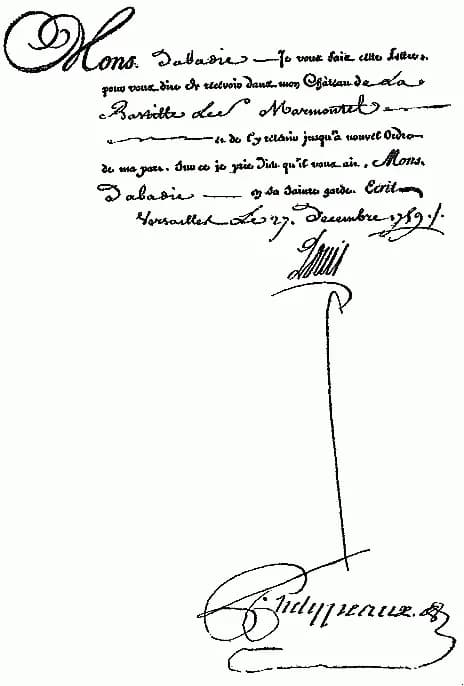 Mons. Dabadie — Je vous fais cette Lettre.
pour vous dire de recevoir dans mon Château de La
Bastille Le Sr Marmontel —
— et de l'y retenir jusqu'à nouvel Ordre
de ma part. Sur ce je prie Dieu qu'il vous ait. Mons.
Dabadie — en sa sainte garde. Ecrit
Versailles Le 27. Decembre 1759.
Louis
Phelypeaux.